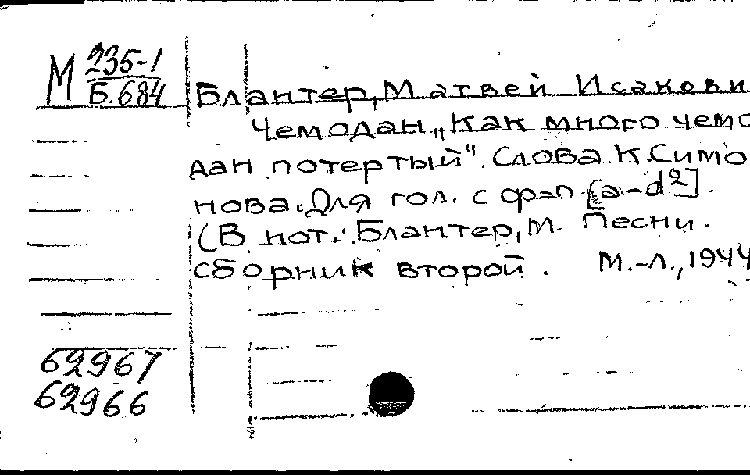 М 235-1
Б.684
Блантер, Матвей Исакови
Чемодан „Как много чемо
дан потертый". Слова К.Симо
нова. Для гол. с ф-п. [a-d²].
(В нот.: Блантер, М. Песни.
сборник второй. М.-Л., 1944
62967
62966